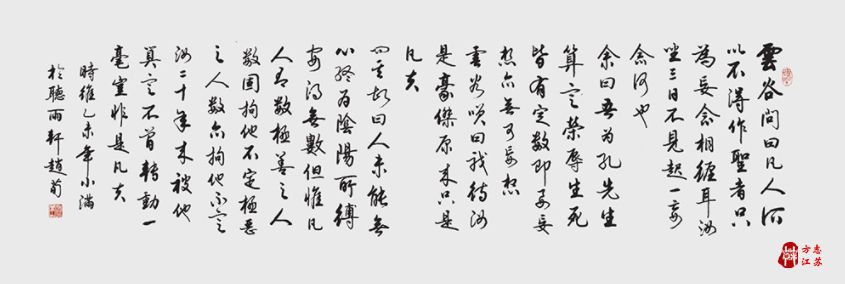 雲谷問曰凡人所
以不得作聖者只
為妄念相纏耳汝
坐三日不見起一妄
念何也
余曰吾為孔先生
算定榮辱生死
皆有定數即要妄
想亦無可妄想
雲谷笑曰我待汝
是豪傑原來只是
凡夫
問其故曰人未能無
心終為陰陽所縛
安得無數但惟凡
人有數極善之人
數固拘他不定極惡
之人數亦拘他不定
汝二十年來被他
算定不曾轉動一
毫豈非是凡夫
時維乙未年小滿
於聽雨軒趙荀
方志
江苏